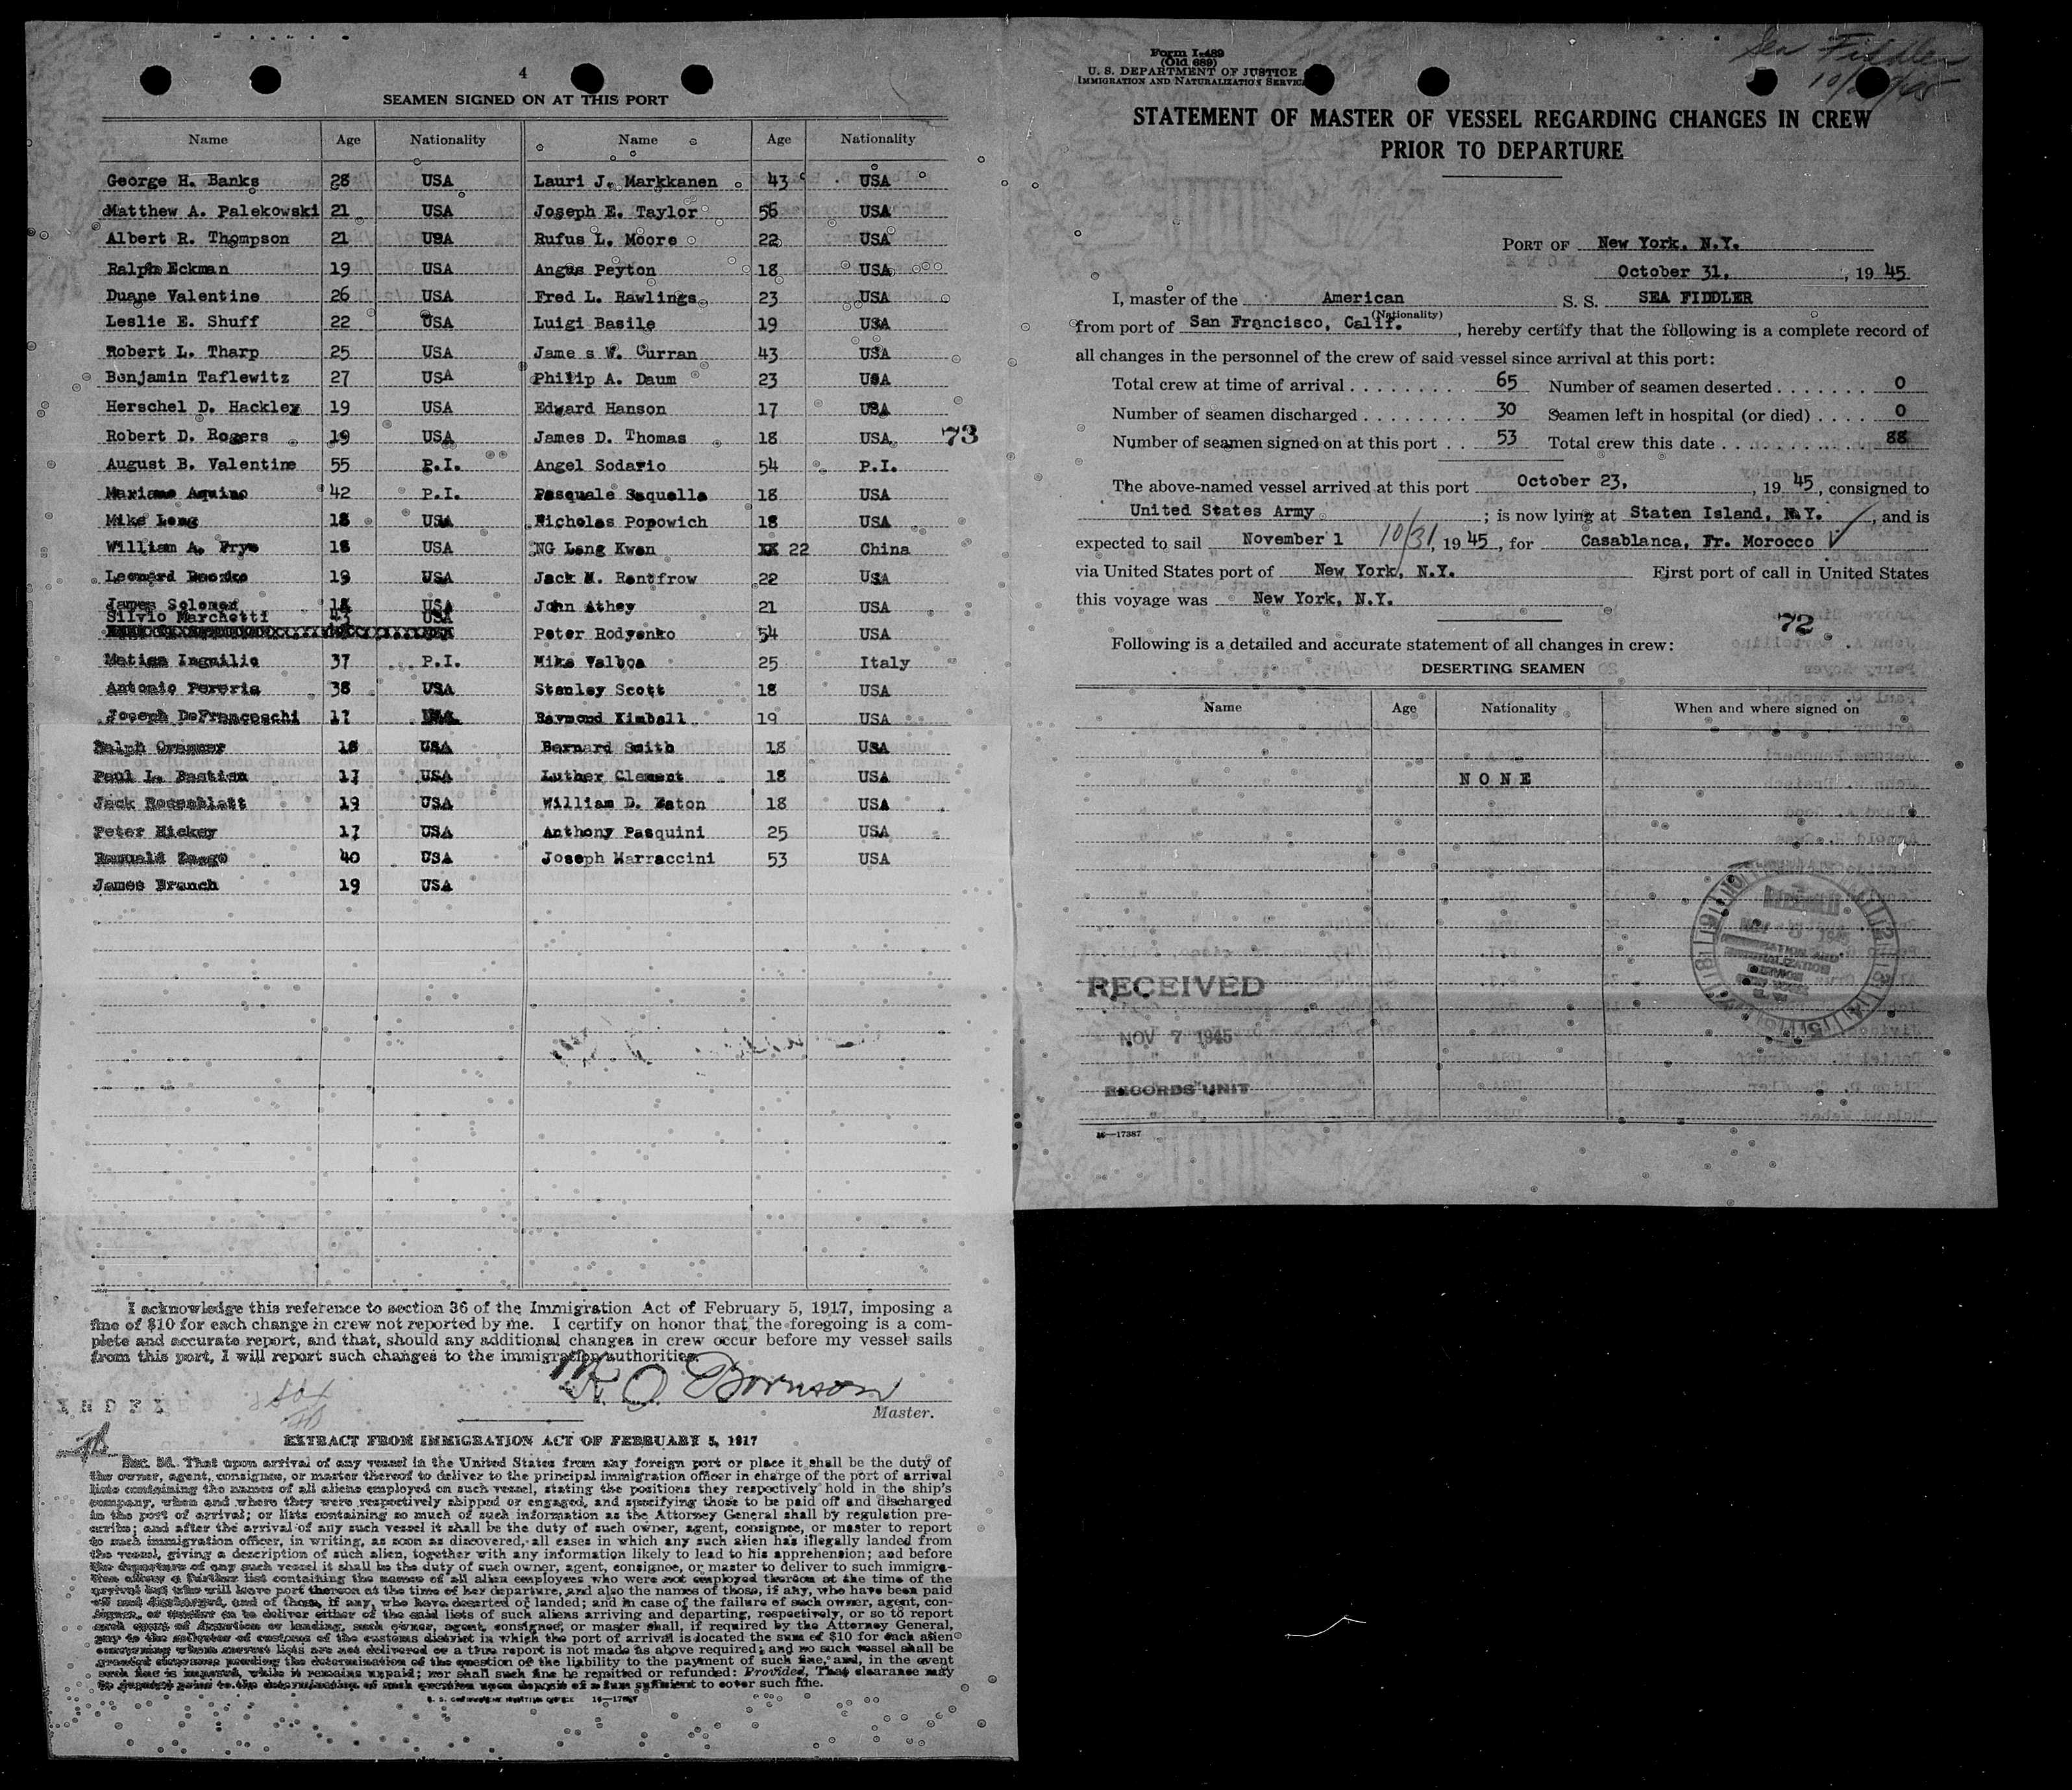 4
SEAMEN SIGNED ON AT THIS PORT
Name Age Nationality Name Age Nationality
George H. Banks 28 USA Lauri J. Markkanen 43 USA
Matthew A. Palekowski 21 USA Joseph E. Taylor 56 USA
Albert R. Thompson 21 USA Rufus L. Moore 22 USA
Ralph Eckman 19 USA Angus Peyton 18 USA
Duane Valentine 26 USA Fred L. Rawlings 23 USA
Leslie E. Shuff 22 USA Luigi Basile 19 USA
Robert L. Tharp 25 USA Jame s W. Curran 43 USA
Benjamin Taflewitz 27 USA Philip A. Daum 23 USA
Herschel D. Hackley 19 USA Edward Hanson 17 USA
Robert D. Rogers 19 USA James D. Thomas 18 USA 73
August B. Valentine 55 P.I. Angel Sodario 54 P.I.
Mariano Aquino 42 P.I. Pasquale Saquella 18 USA
Mike Long 18 USA Nicholas Popowich 18 USA
William A. Frye 18 USA NG Lang Kwan 22 China
Leonard 19 USA Jack M. Rentfrow 22 USA
James Solomon 18 USA John Athey 21 USA
Silvio Marchetti 43 USA
Peter Rodyenko 54 USA
Matias Inguilio 37 P.I. Mike Valboa 25 Italy
Antonio Pereria 38 USA Stanley Scott 18 USA
Joseph DeFranceschi 17 USA Raymond Kimball 19 USA
Ralph Crammer 18 USA Bernard Smith 18 USA
Paul L. Bastian 17 USA Luther Clement 18 USA
Jack Rosenblatt 19 USA William D. Eaton 18 USA
Peter Hickey 17 USA Anthony Pasquini 25 USA
Romuald Zaago 40 USA Joseph Marraccini 53 USA
James Branch 19 USA
I acknowledge this reference to section 36 of the Immigration Act of February 5, 1917, imposing a
fine of $10 for each change in crew not reported by me. I certify on honor that the foregoing is a com-
plete and accurate report, and that, should any additional changes in crew occur before my vessel sails
from this port, I will report such changes to the immigration authorities.
Master.
EXTRACT FROM IMMIGRATION ACT OF FEBRUARY 5, 1917
Sec. 36. That upon arrival of any vessel in the United States from any foreign port or place it shall be the duty of
the owner, agent, consignee, or master thereof to deliver to the principal immigration officer in charge of the port of arrival
lists containing the names of all aliens employed on such vessel, stating the positions they respectively hold in the ship's
company, when and where they were respectively shipped or engaged, and specifying those to be paid off and discharged
in the port of arrival; or lists containing so much of such information as the Attorney General shall by regulation pre-
scribe; and after the arrival of any such vessel it shall be the duty of such owner, agent, consignee, or master to report
to such immigration officer, in writing, as soon as discovered, all cases in which any such alien has illegally landed from
the vessel, giving a description of such alien, together with any information likely to lead to his apprehension; and before
the departure of any such vessel it shall be the duty of such owner, agent, consignee, or master to deliver to such immigra-
tion officer a further list containing the names of all alien employees who were not employed thereon at the time of the
arrival but who will leave port thereon at the time of her departure, and also the names of those, if any, who have been paid
off and discharged, and of those, if any, who have deserted or landed; and in case of the failure of such owner, agent, con-
signee, or master so to deliver either of the said lists of such aliens arriving and departing, respectively, or so to report
such cases of desertion or landing, such owner, agent, consignee, or master shall, if required by the Attorney General,
pay to the collector of customs of the customs district in which the port of arrival is located the sum of $10 for each alien
concerning whom correct lists are not delivered or a true report is not made as above required; and no such vessel shall be
granted clearance pending the determination of the question of the liability to the payment of such fine, and, in the event
such fine is imposed, while it remains unpaid; nor shall such fine be remitted or refunded: Provided, That clearance may
be granted prior to the determination of such question upon deposit of a sum sufficient to cover such fine.
U. S. GOVERNMENT PRINTING OFFICE 16—17387
Sea Fiddler
Form I-489
(Old 689)
U. S. DEPARTMENT OF JUSTICE
IMMIGRATION AND NATURALIZATION SERVICE
STATEMENT OF MASTER OF VESSEL REGARDING CHANGES IN CREW
PRIOR TO DEPARTURE
PORT OF New York, N.Y.
October 31, , 19 45
I, master of the American S. S. SEA FIDDLER
(Nationality)
from port of San Francisco, Calif. , hereby certify that the following is a complete record of
all changes in the personnel of the crew of said vessel since arrival at this port:
Total crew at time of arrival 65 Number of seamen deserted 0
Number of seamen discharged 30 Seamen left in hospital (or died) 0
Number of seamen signed on at this port 53 Total crew this date 88
The above-named vessel arrived at this port October 23, , 19 45, consigned to
United States Army ; is now lying at Staten Island, N.Y. , and is
expected to sail November 1 10/31, 19 45, for Casablanca, Fr. Morocco
via United States port of New York, N.Y. First port of call in United States
this voyage was New York, N.Y.
72
Following is a detailed and accurate statement of all changes in crew:
DESERTING SEAMEN
Name Age Nationality When and where signed on
NONE
RECEIVED
NOV 7 1945
RECORDS UNIT
16—17387